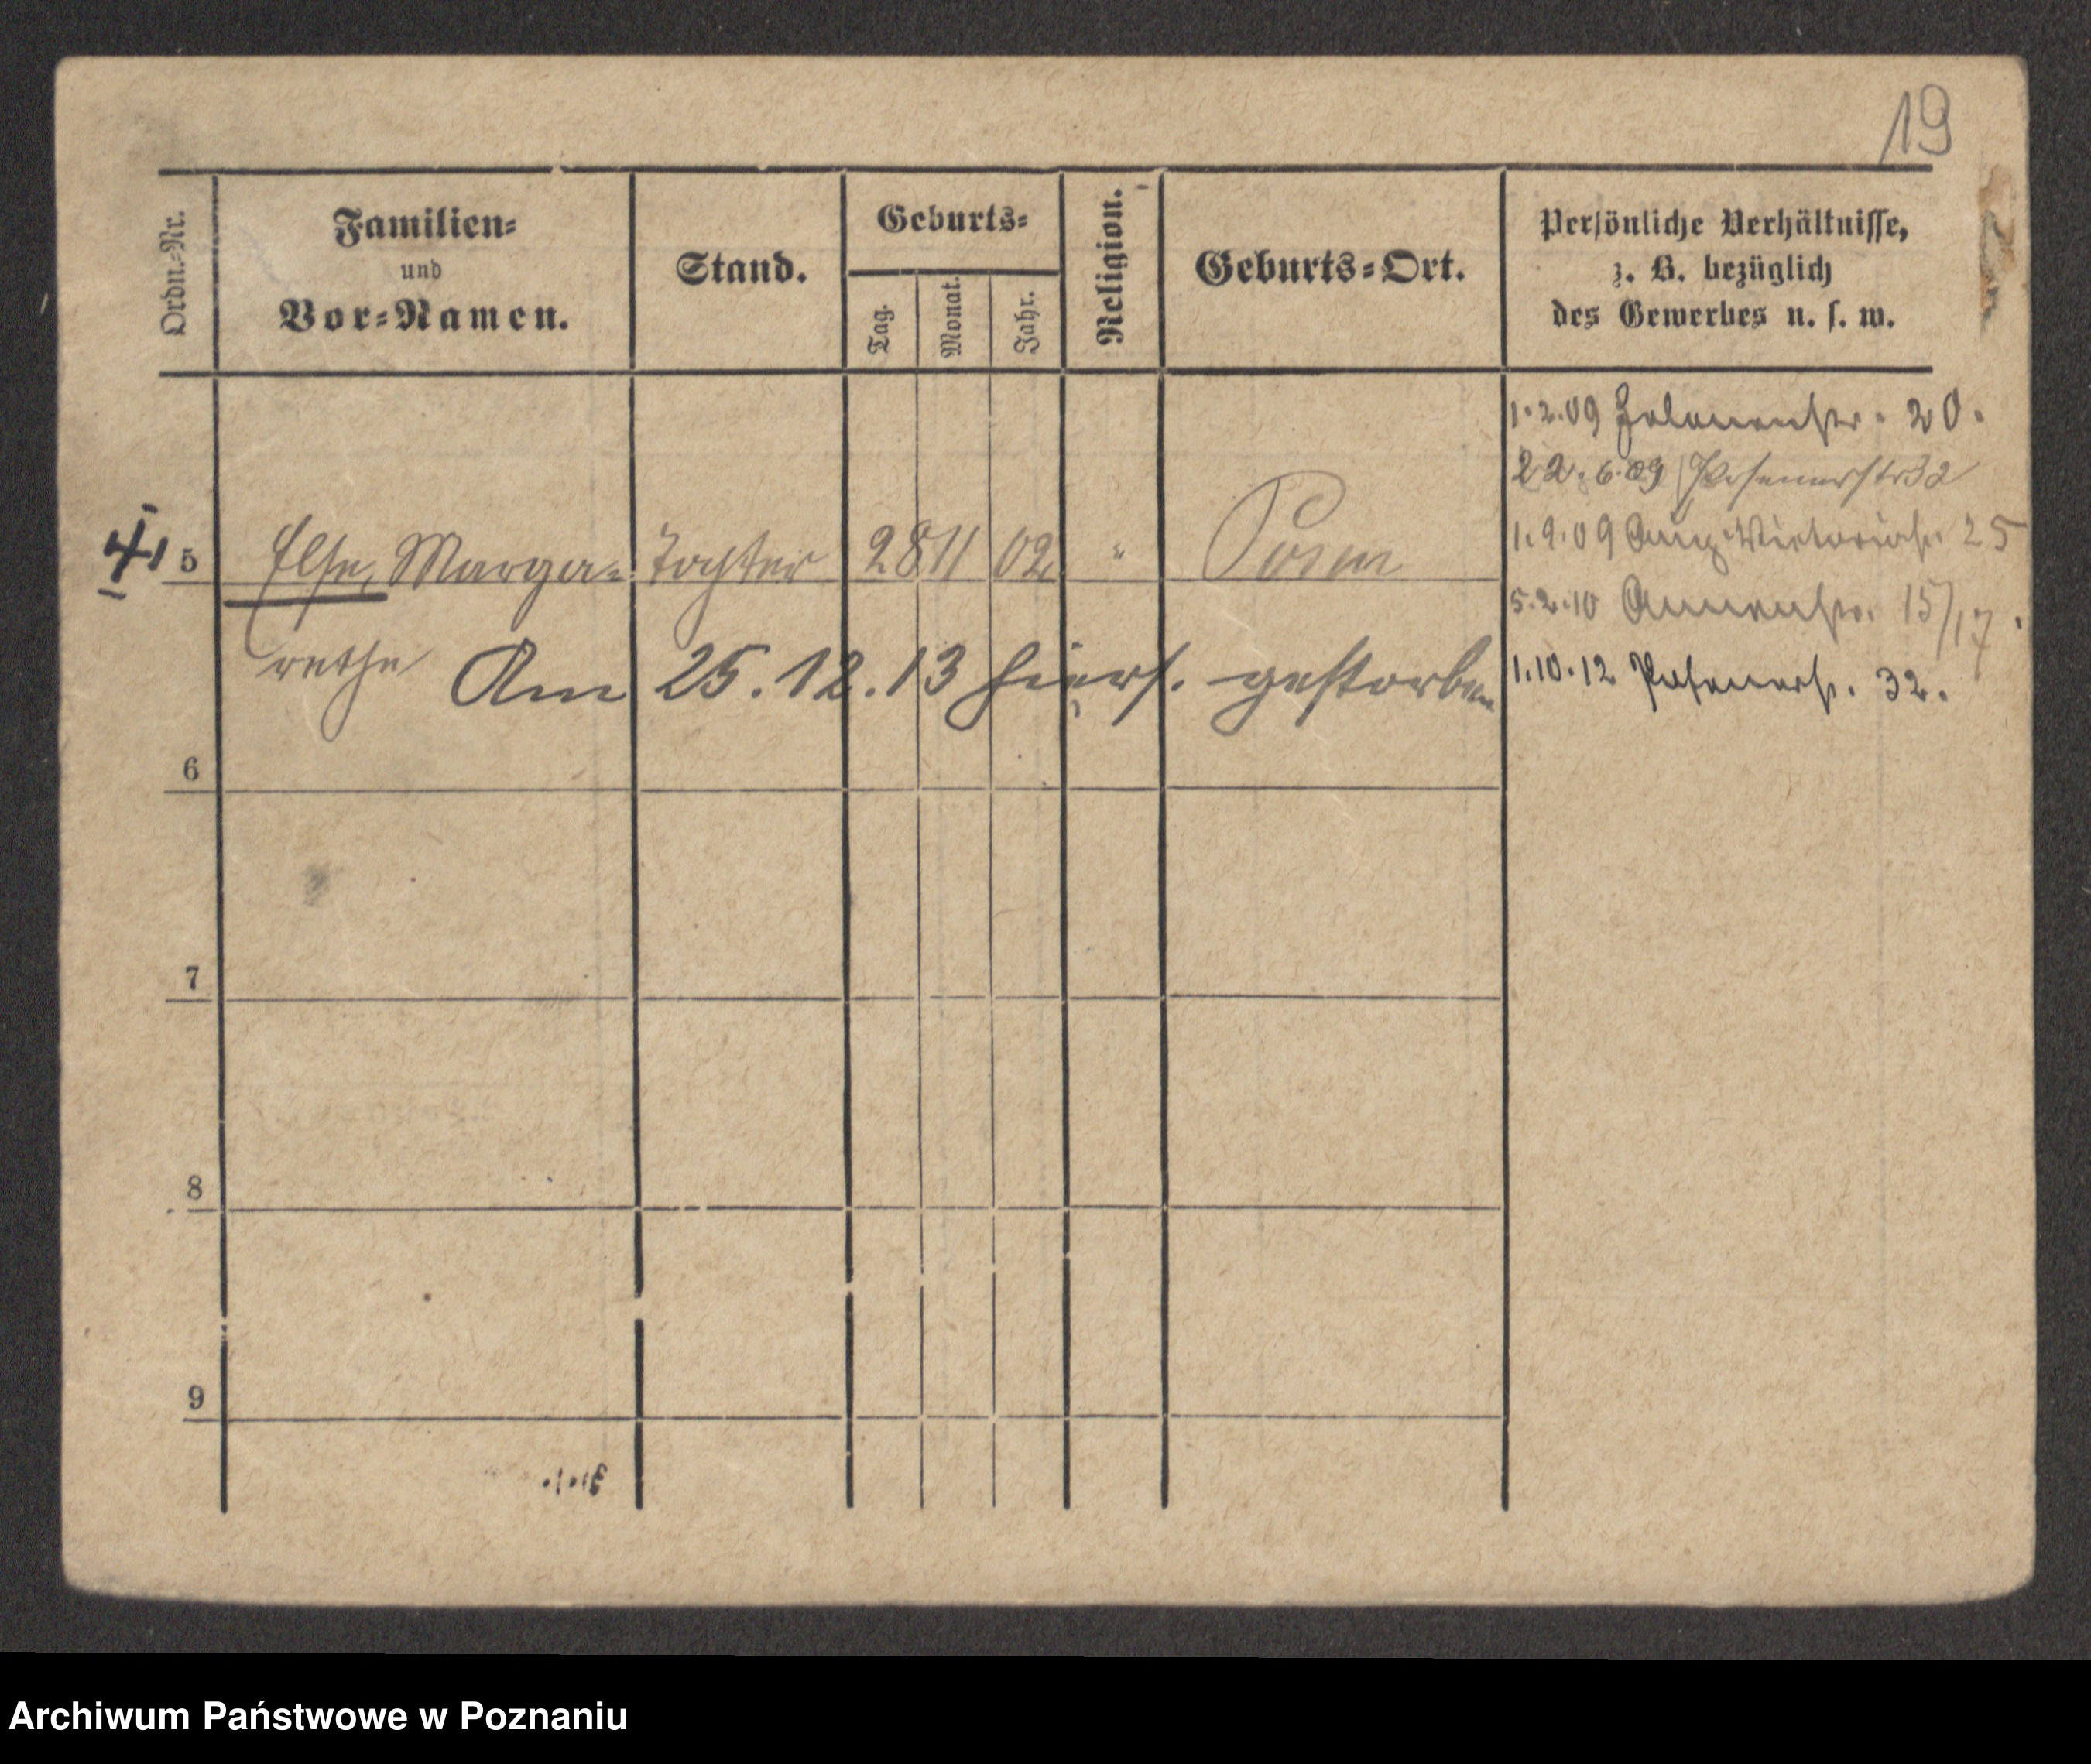 19
Ordn.-Nr.
Familien-
und
Vor-Namen.
Stand.
Geburts-
Tag.
Monat.
Jahr.
Religion.
Geburts-Ort.
Persönliche Verhältnisse,
z. B. bezüglich
des Gewerbes u. s. w.
1.2.09 20.
22.6.09 Posenerstr 32
1.9.09 Aug. Victoriastr. 25
5.2.10 Annenstr. 15/17.
1.10.12 Posenerstr. 32.
4 5 Else, Marga- Tochter 28 11 02 " Posen
rethe Am 25.12.13 hiers. gestorben
6
7
8
9
Archiwum Państwowe w Poznaniu